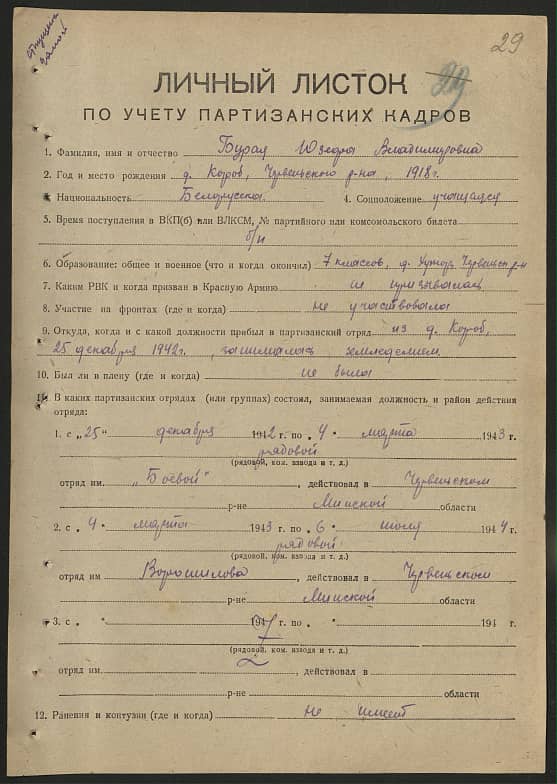 отпущена
домой
29
29
ЛИЧНЫЙ ЛИСТОК
ПО УЧЕТУ ПАРТИЗАНСКИХ КАДРОВ
1. Фамилия, имя и отчество Бурая Юзефа Владимировна
2. Год и место рождения д. Короб, Червеньского р-на, 1918 г.
3. Национальность Белорусска. 4. Соцположение учащаяся
5. Время поступления в ВКП(б) или ВЛКСМ, № партийного или комсомольского билета
б/п
6. Образование: общее и военное (что и когда окончил) 7 классов, д. Хутор Червенск. р-н
7. Каким РВК и когда призван в Красную Армию не призывалась
8. Участие на фронтах (где и когда) не участвовала
9. Откуда, когда и с какой должности прибыл в партизанский отряд из д. Короб,
25 декабря 1942 г., занималась земледелием
10. Был ли в плену (где и когда) не была
11. В каких партизанских отрядах (или группах) состоял, занимаемая должность и район действия
отряда:
1. с „25" декабря 1942 г. по „4" марта 1943 г.
рядовой
(рядовой, ком. взвода и т. д.)
отряд им. „Боевой", действовал в Червеньском
р-не Минской области
2. с „4" марта 1943 г. по „6" июля 1944 г.
рядовой
(рядовой, ком. взвода и т. д.)
отряд им. Ворошилова, действовал в Червеньском
р-не Минской области
3. с „ " 194 г. по „ " 194 г.
(рядовой, ком. взвода и т. д.)
отряд им. , действовал в
р-не области
12. Ранения и контузии (где и когда) не имеет